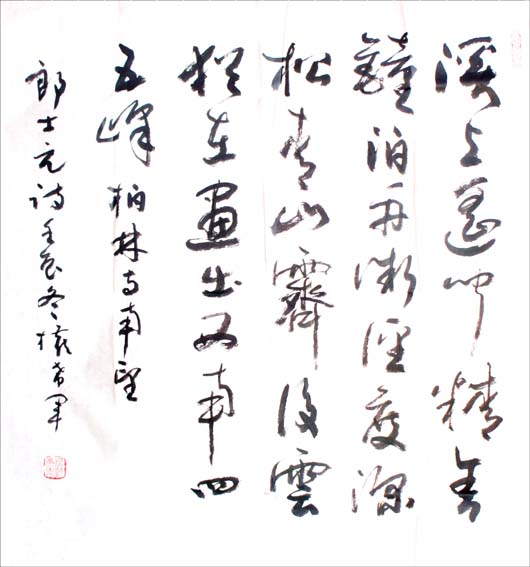 溪上遥闻精舍
鐘泊舟微徑度深
松青山霽後雲
猶在畫出西南四
五峰 柏林寺南望
郎士元诗壬辰冬